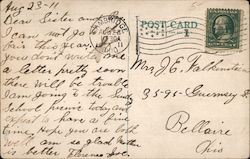 Aug 23-11
Dear Sister and B.
I can not go to
fair this year.
you don't write me
a letter pretty soon
there will be trouble
I am going to the
school picnic today and
expect to have a fine
time. Hope you are both
well am so glad Mother
better Florence
POST CARD
1
Mrs. J. E. Falkenstein
3595 Guernsey S
Bellaire
Ohio